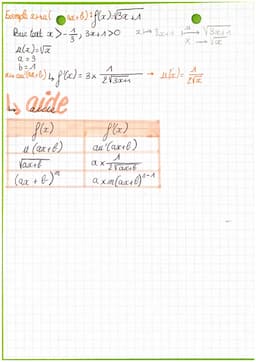 Exemple x→u(ax+b) : f(x)=√3x+1
Pour tout x > -1/3, 3x+1>0
x → 3x+1 →u √3x+1
x → √x
u(x)=√x
a = 3
b = 1
x→au'(ax+b) ↳ f'(x) = 3 × 1/2√3x+1 → u'(x) = 1/2√x
↳ aide
f(x) f'(x)
u(ax+b) au'(ax+b)
√ax+b a × 1/2√ax+b
(ax+b)ⁿ a×n(ax+b)ⁿ⁻¹